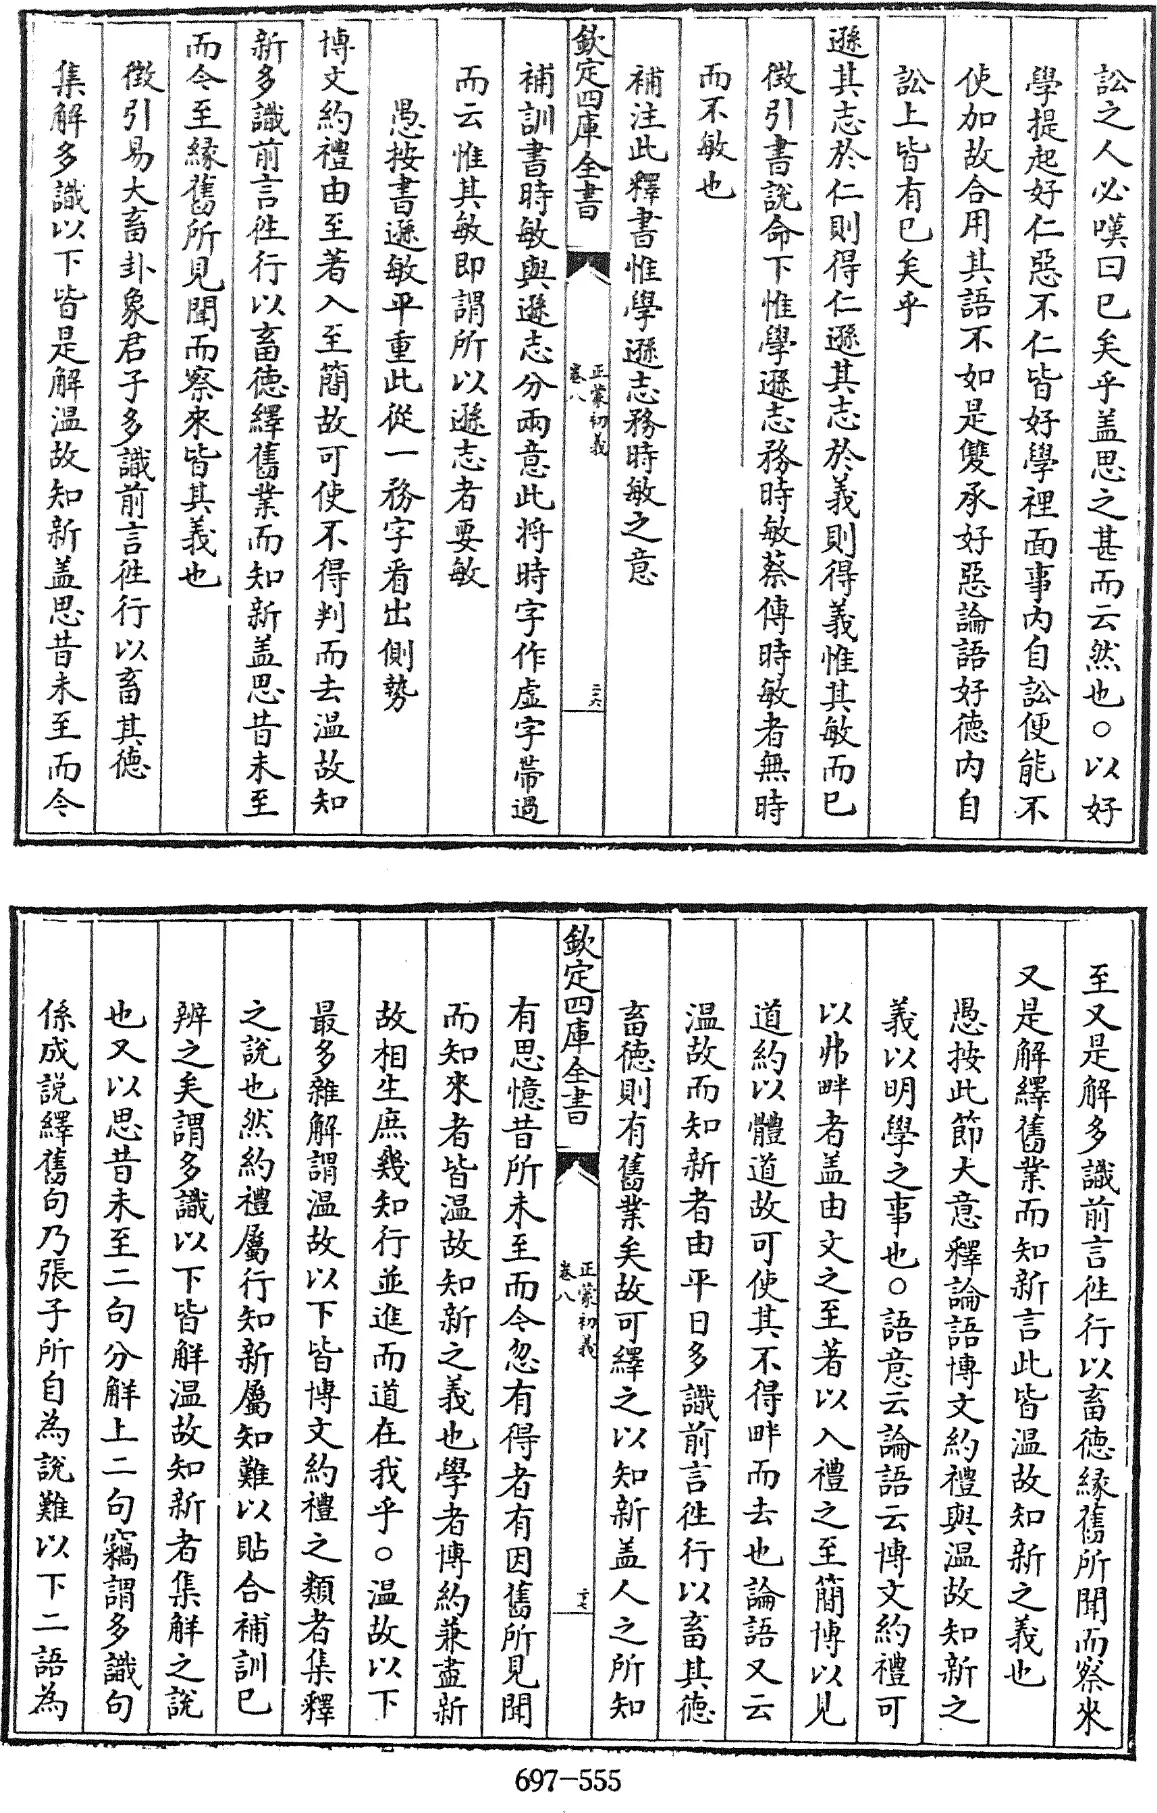 訟之人必嘆曰已矣乎盖思之甚而云然也○以好
學提起好仁惡不仁皆好學裡面事内自訟便能不
使加故合用其語不如是雙承好惡論語好徳内自
訟上皆有已矣乎
遜其志於仁則得仁遜其志於義則得義惟其敏而已
徴引書說命下惟學遜志務時敏蔡傳時敏者無時
而不敏也
補注此釋書惟學遜志務時敏之意
欽定四庫全書
正蒙初義
卷八
二六
補訓書時敏與遜志分兩意此将時字作虛字帶過
而云惟其敏即謂所以遜志者要敏
愚按書遜敏平重此從一務字看出側勢
博文約禮由至著入至簡故可使不得判而去温故知
新多識前言徃行以畜徳繹舊業而知新盖思昔未至
而今至縁舊所見聞而察來皆其義也
徴引易大畜卦象君子多識前言徃行以畜其徳
集解多識以下皆是解温故知新盖思昔未至而今
至又是解多識前言徃行以畜徳縁舊所聞而察來
又是解繹舊業而知新言此皆温故知新之義也
愚按此節大意釋論語博文約禮與温故知新之
義以明學之事也○語意云論語云博文約禮可
以弗畔者盖由文之至著以入禮之至簡博以見
道約以體道故可使其不得畔而去也論語又云
温故而知新者由平日多識前言徃行以畜其徳
畜徳則有舊業矣故可繹之以知新盖人之所知
欽定四庫全書
正蒙初義
卷八
二七
有思憶昔所未至而今忽有得者有因舊所見聞
而知來者皆温故知新之義也學者博約兼盡新
故相生庶幾知行並進而道在我乎○温故以下
最多雜解謂温故以下皆博文約禮之類者集釋
之說也然約禮屬行知新屬知難以貼合補訓已
辨之矣謂多識以下皆解温故知新者集解之說
也又以思昔未至二句分解上二句竊謂多識句
係成説繹舊句乃張子所自為說難以下二語為
697-555